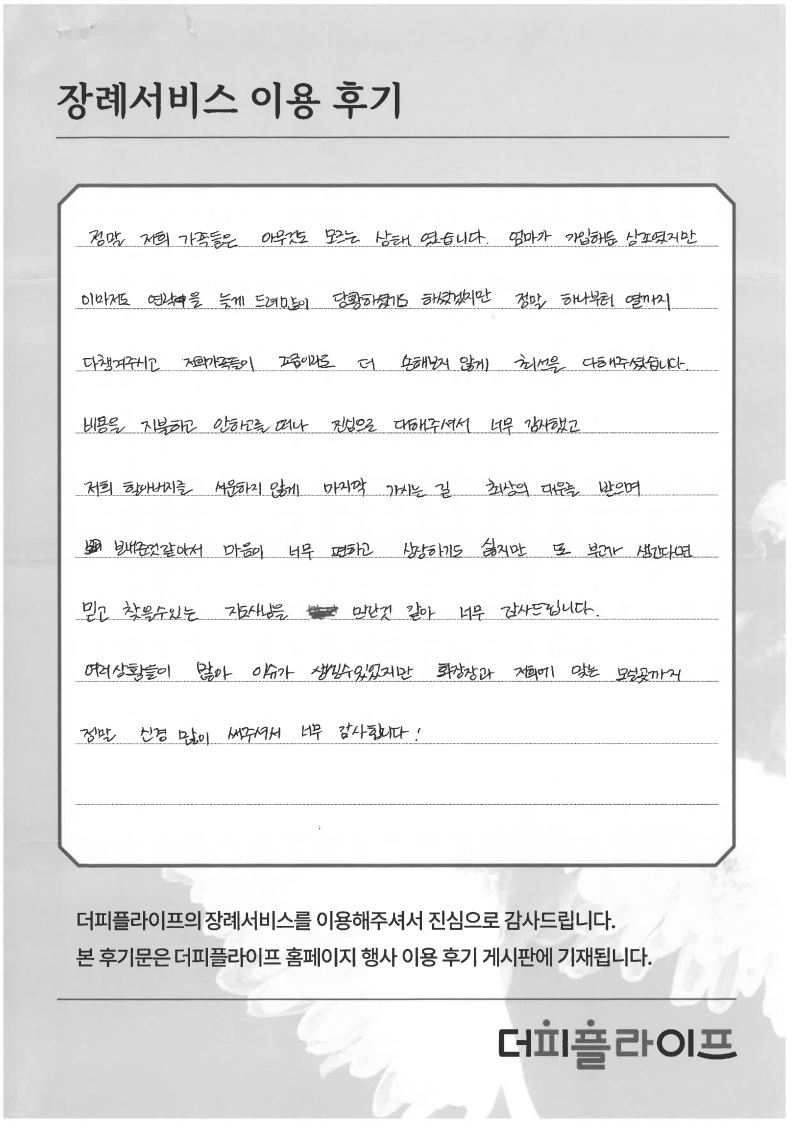 장례서비스 이용 후기
정말 저희 가족들은 아무것도 모르는 상태 였습니다. 엄마가 가입해둔 상조였지만
이마저도 연락을 늦게 드려 많이 당황하셨기도 하셨겠지만 정말 하나부터 열까지
다챙겨주시고 저희가족들이 조금이라도 더 손해보지 않게 최선을 다해주셨습니다.
비용을 지불하고 안하고를 떠나 진심으로 대해주셔서 너무 감사했고
저희 할아버지를 서운하지 않게 마지막 가시는 길 최상의 대우를 받으며
보내준것같아서 마음이 너무 편하고 상장하기도 싫지만 또 부고가 생긴다면
믿고 찾을수있는 지도사님을 만난것 같아 너무 감사드립니다.
여러상황들이 많아 이슈가 생길수있었지만 화장장과 저희에 맞는 모실곳까지
정말 신경 많이 써주셔서 너무 감사합니다!
더피플라이프의 장례서비스를 이용해주셔서 진심으로 감사드립니다.
본 후기문은 더피플라이프 홈페이지 행사 이용 후기 게시판에 기재됩니다.
더피플라이프